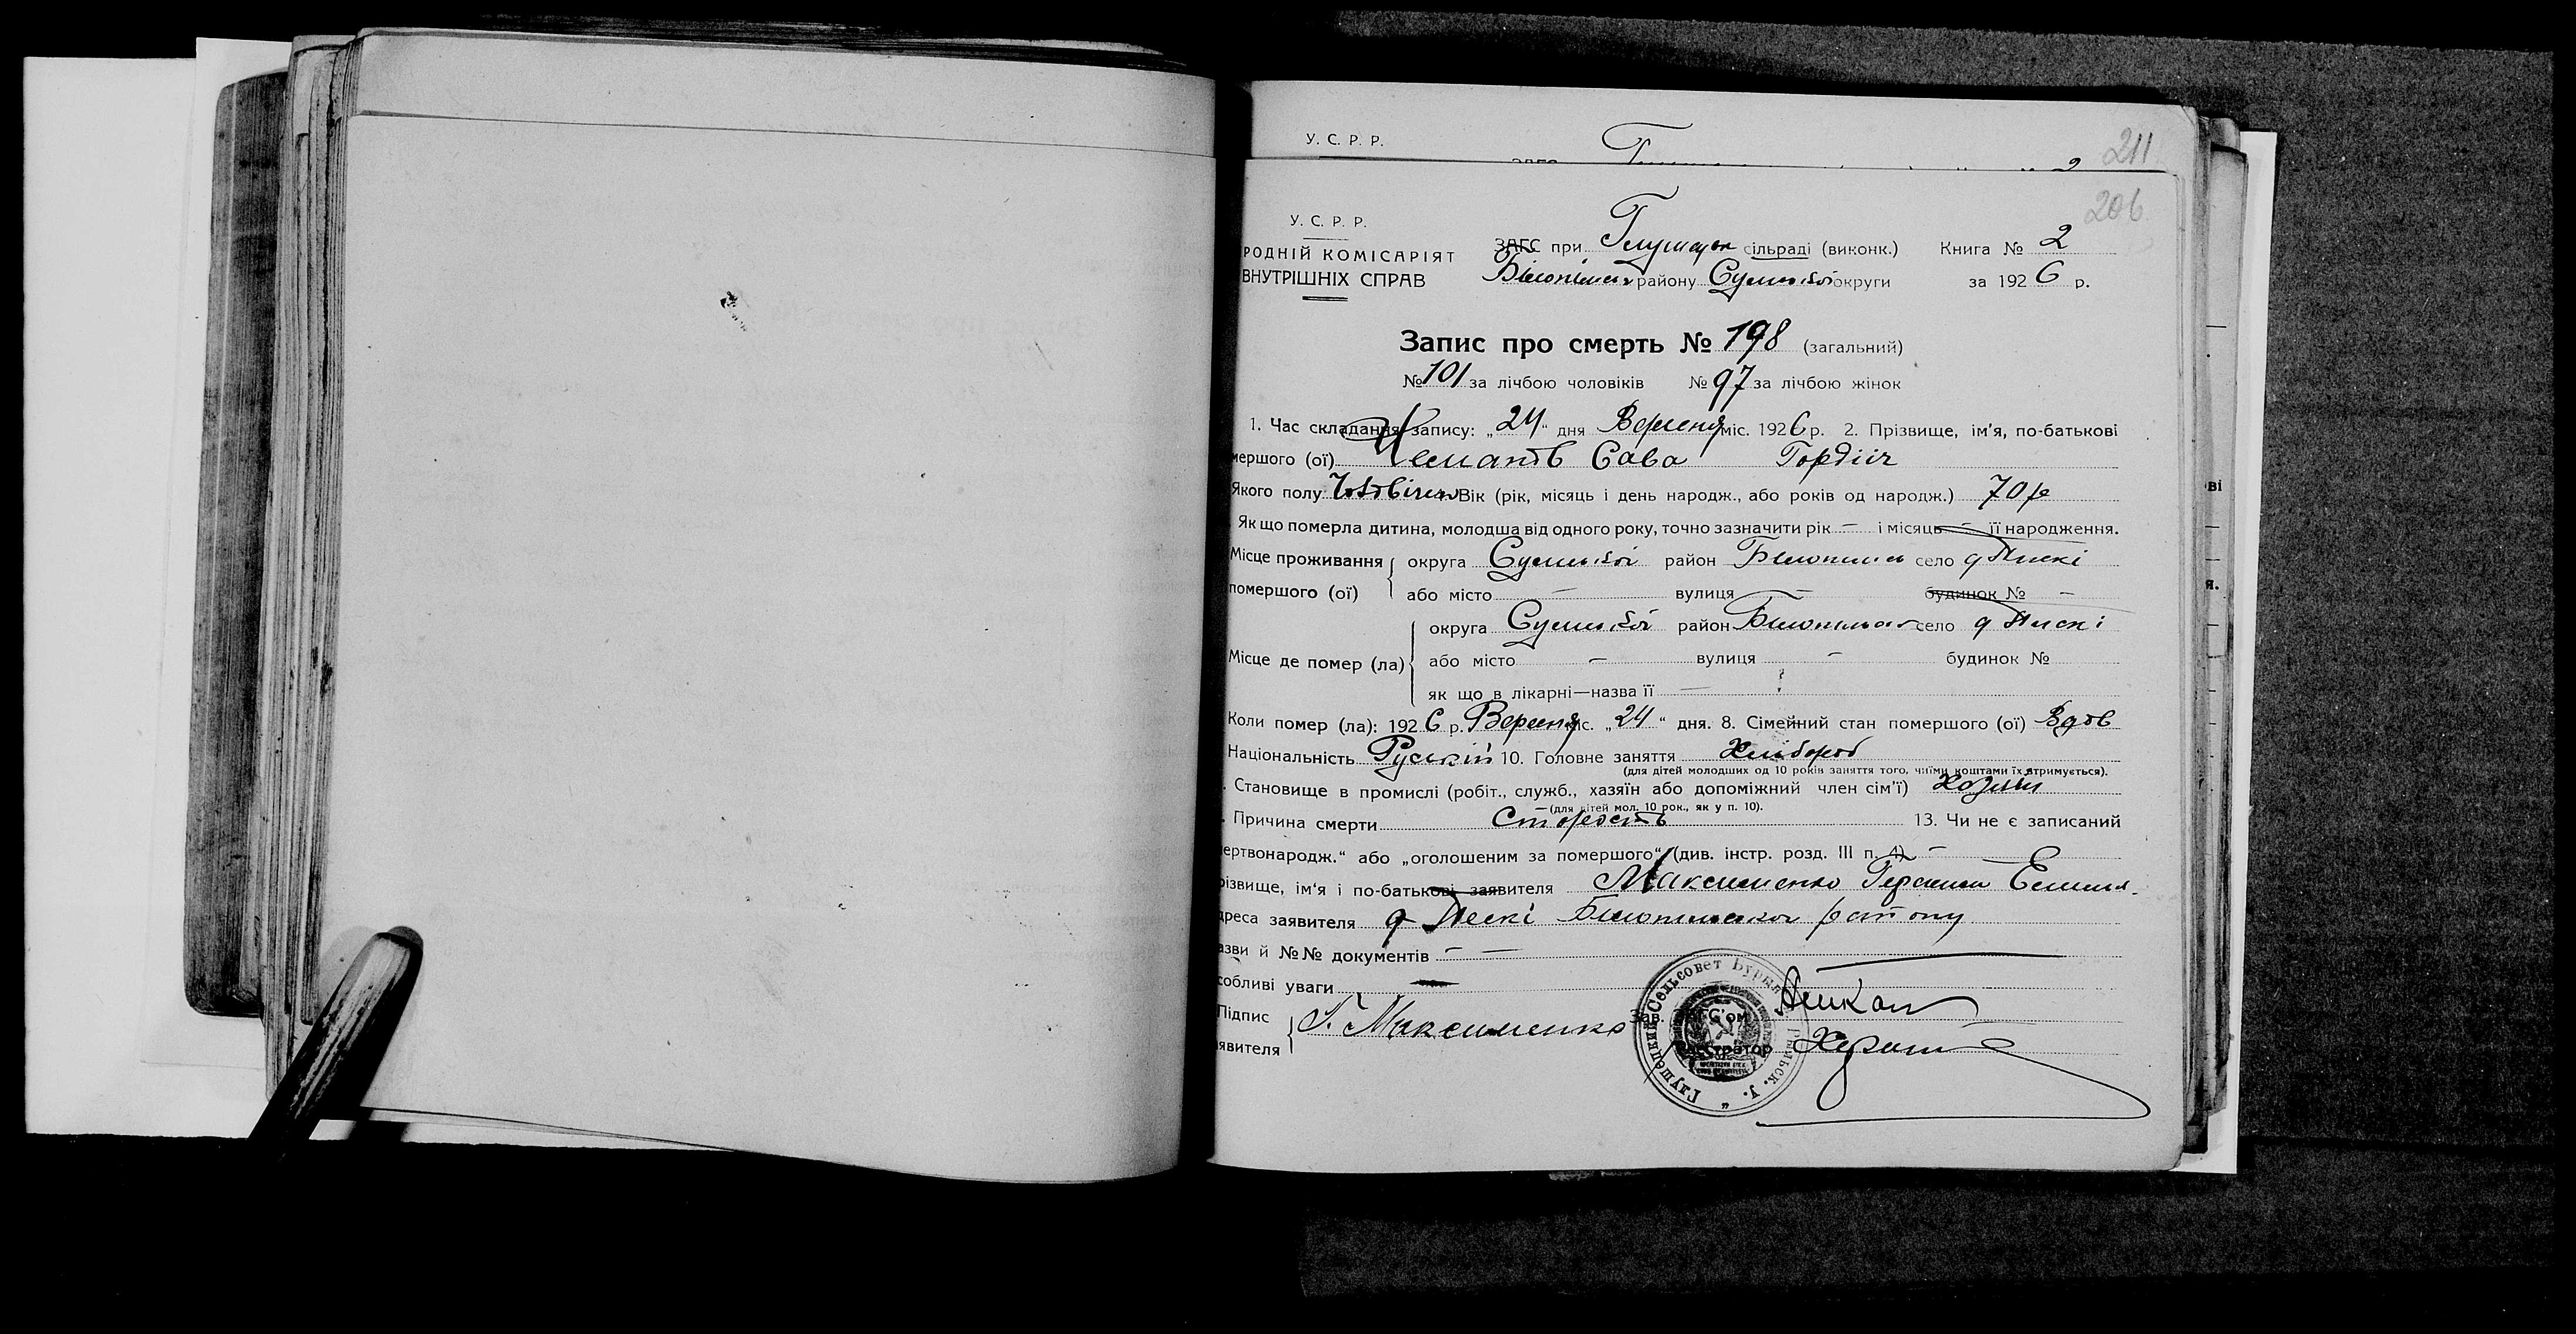 У. С. Р. Р.
211
206
У. С. Р. Р.
РОДНІЙ КОМІСАРІЯТ
ВНУТРІШНІХ СПРАВ
ЗАГС при сільраді (виконк.) Книга № 2
району Сумської округи за 1926 р.
Запис про смерть № 198 (загальний)
№ 101 за лічбою чоловіків № 97 за лічбою жінок
1. Час складання запису: „24“ дня Вересня міс. 1926 р. 2. Прізвище, ім'я, по-батькові
мершого (ої) Сава Гордіїч
Якого полу Вік (рік, місяць і день народж., або років од народж.) 70 р
Як що померла дитина, молодша від одного року, точно зазначити рік — і місяць — її народження.
Місце проживання
помершого (ої)
округа Сумської район село д Пискі
або місто — вулиця — будинок № —
Місце де помер (ла)
округа Сумської район село д Пискі
або місто — вулиця — будинок №
як що в лікарні—назва її —
Коли помер (ла): 1926 р. Вересня міс. „24“ дня. 8. Сімейний стан помершого (ої) Вдов
Національність Руський 10. Головне заняття Хлібороб
(для дітей молодших од 10 років заняття того, чиїми коштами їх утримується).
. Становище в промислі (робіт., служб., хазяїн або допоміжний член сім'ї) Хозяин
—(для дітей мол. 10 рок., як у п. 10).
. Причина смерти Старость 13. Чи не є записаний
ертвонародж.“ або „оголошеним за помершого“ (див. інстр. розд. III п. 4) —
різвище, ім'я і по-батькові заявителя Максименко Герасим
дреса заявителя д Пескі району
азви й №№ документів — —
собливі уваги —
Підпис
явителя
Максименко
Зав. ЗАГС'ом
Реєстратор
Глушецкий Сельсовет Рыльск. у.